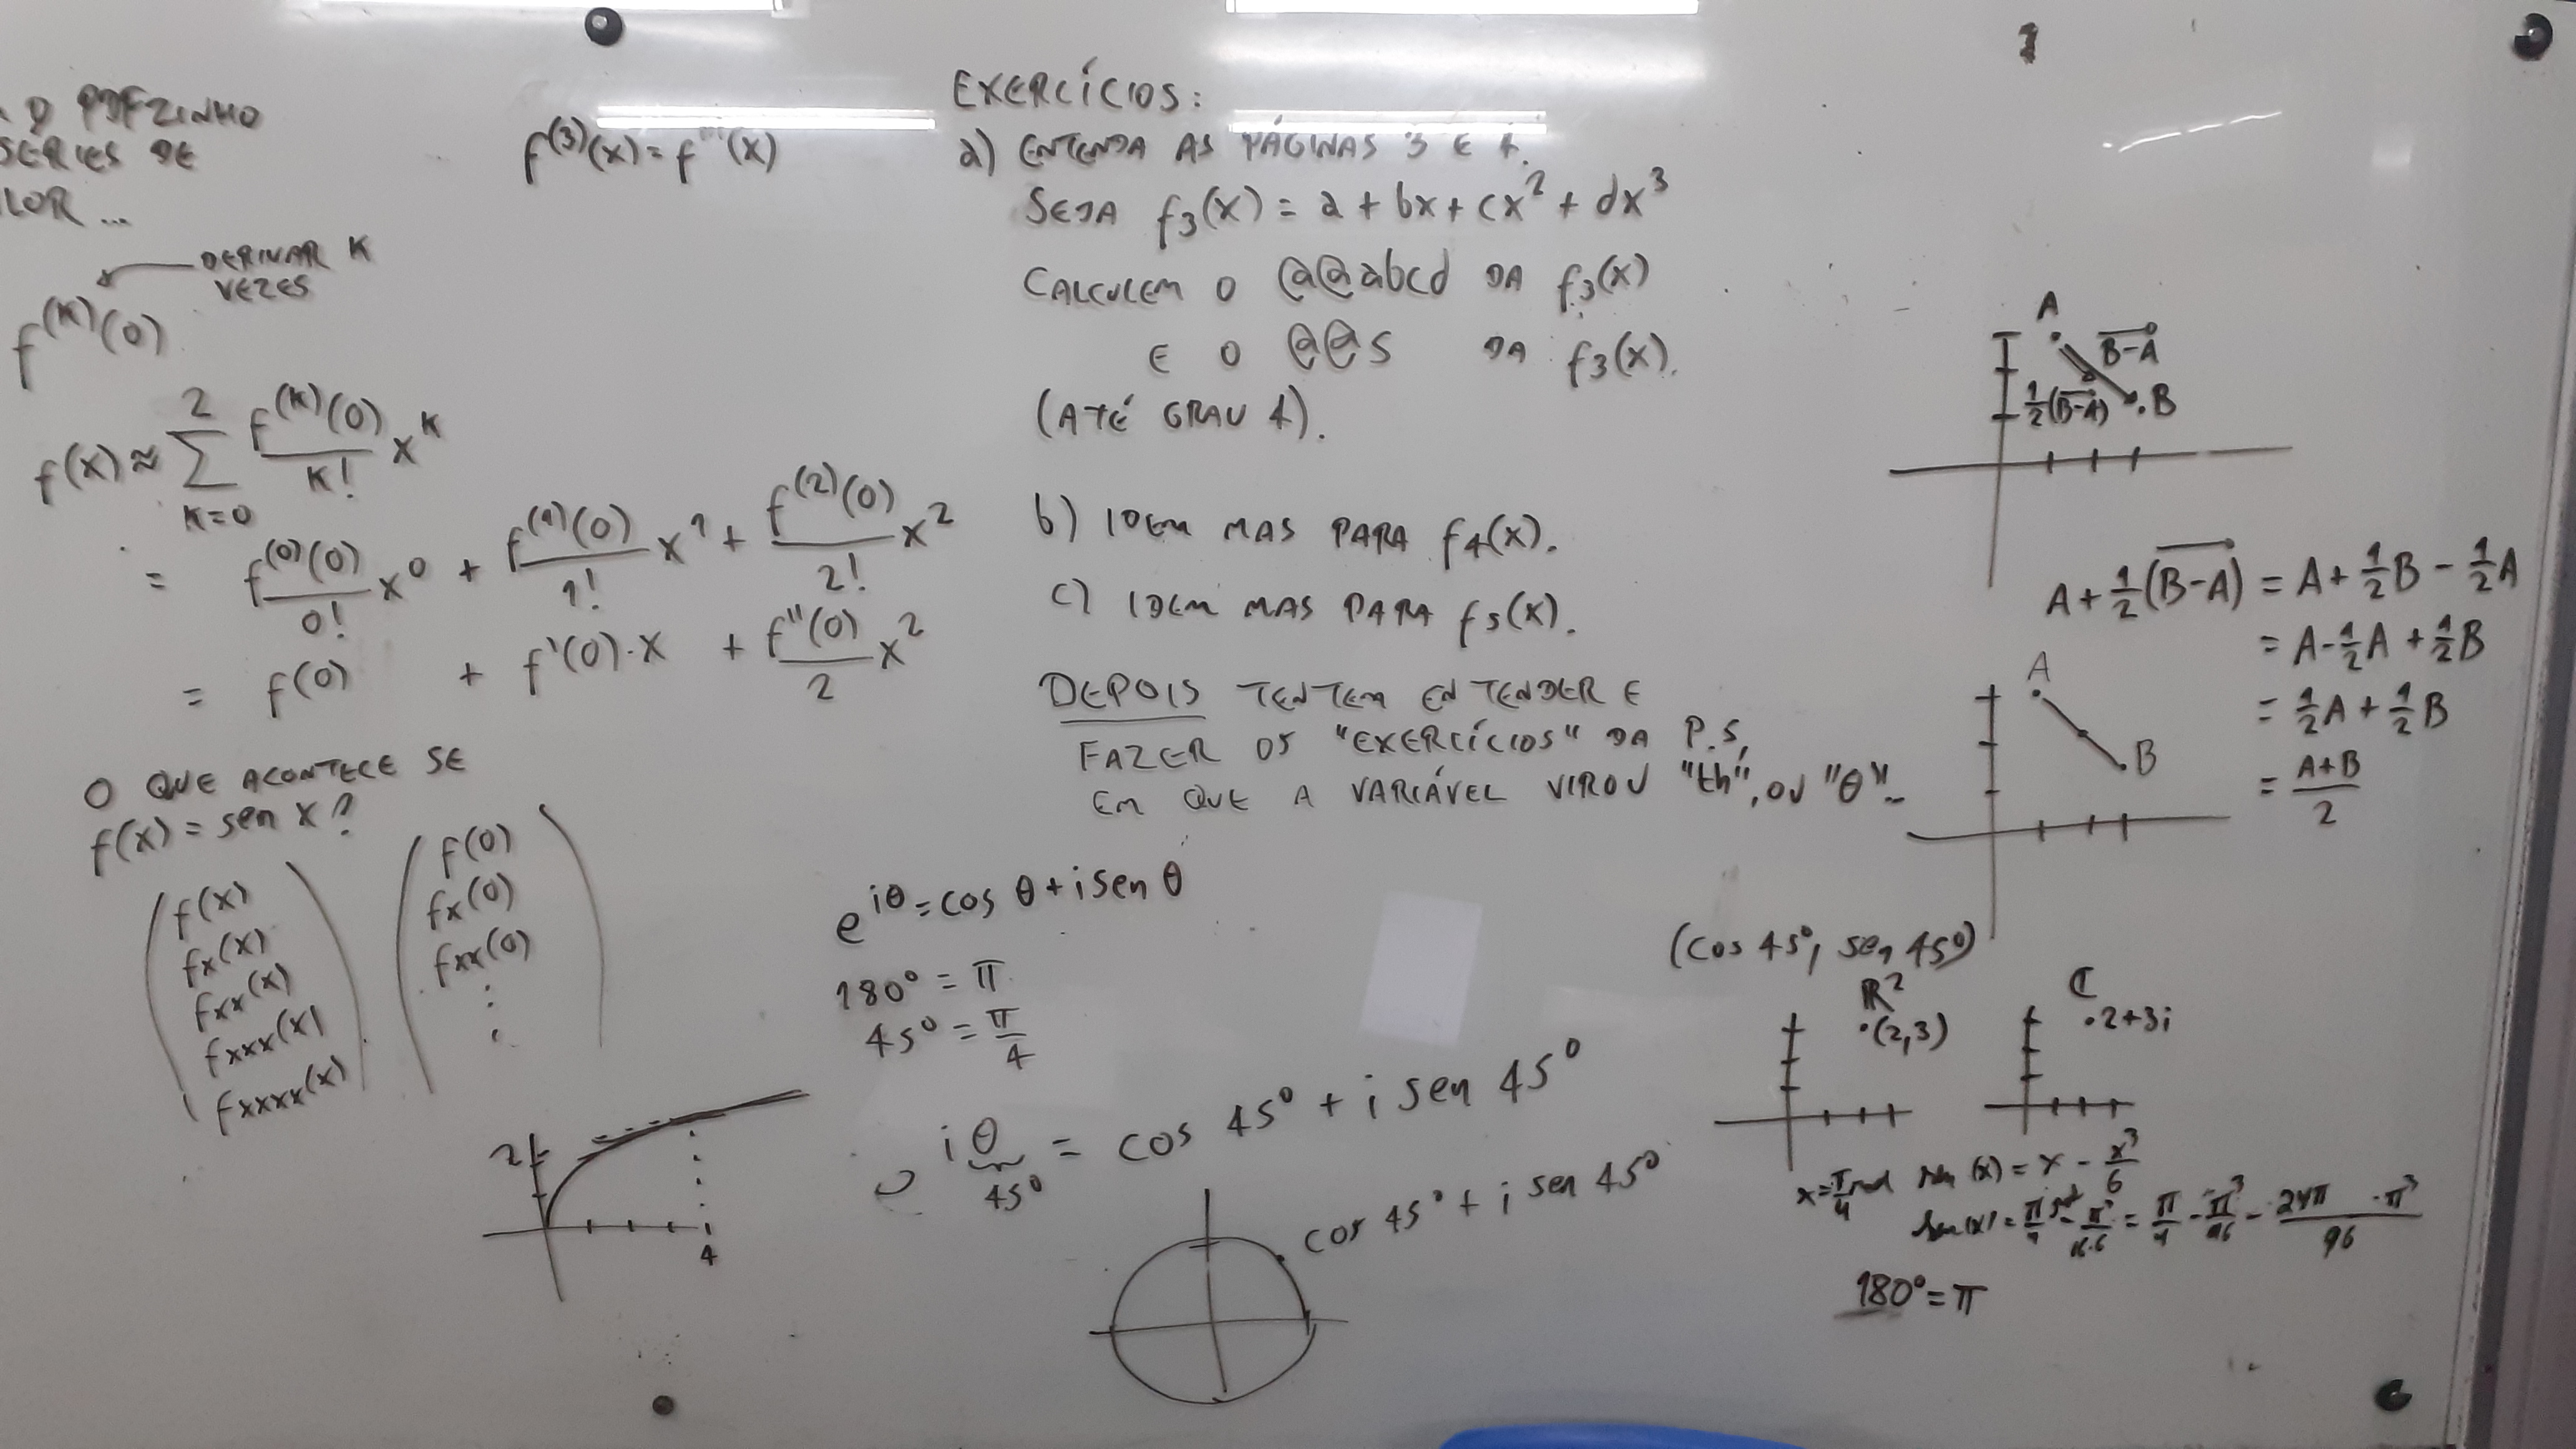 O PDFZINHO
SÉRIES DE
LOR ...
DERIVAR K
VEZES
f^(K)(0)
f(x) ≈ Σ_{K=0}^{2} f^(K)(0)/K! x^K
= f^(0)(0)/0! x^0 + f^(1)(0)/1! x^1 + f^(2)(0)/2! x^2
= f(0) + f'(0)·x + f''(0)/2 x^2
O QUE ACONTECE SE
f(x) = sen x?
f(x)
fx(x)
fxx(x)
fxxx(x)
fxxxx(x)
f(0)
fx(0)
fxx(0)
⋮
2
4
f^(3)(x) = f'''(x)
EXERCÍCIOS:
a) ENTENDA AS PÁGINAS 3 E 4.
SEJA f3(x) = a + bx + cx^2 + dx^3
CALCULEM O @@abcd DA f3(x)
E O @@S DA f3(x).
(ATÉ GRAU 4).
b) IDEM MAS PARA f4(x).
c) IDEM MAS PARA f5(x).
DEPOIS TENTEM ENTENDER E
FAZER OS "EXERCÍCIOS" DA P.5,
EM QUE A VARIÁVEL VIROU "th", OU "θ"...
e^{iθ} = cos θ + i sen θ
180° = π
45° = π/4
e^{iθ} = cos 45° + i sen 45°
45°
cos 45° + i sen 45°
A
B-A
1/2(B-A)
B
A + 1/2(B-A) = A + 1/2B - 1/2A
= A - 1/2A + 1/2B
= 1/2A + 1/2B
= A+B/2
A
B
(cos 45°, sen 45°)
R^2
(2,3)
C
2+3i
x = π/4 rad sen (x) = x - x^3/6
180° = π